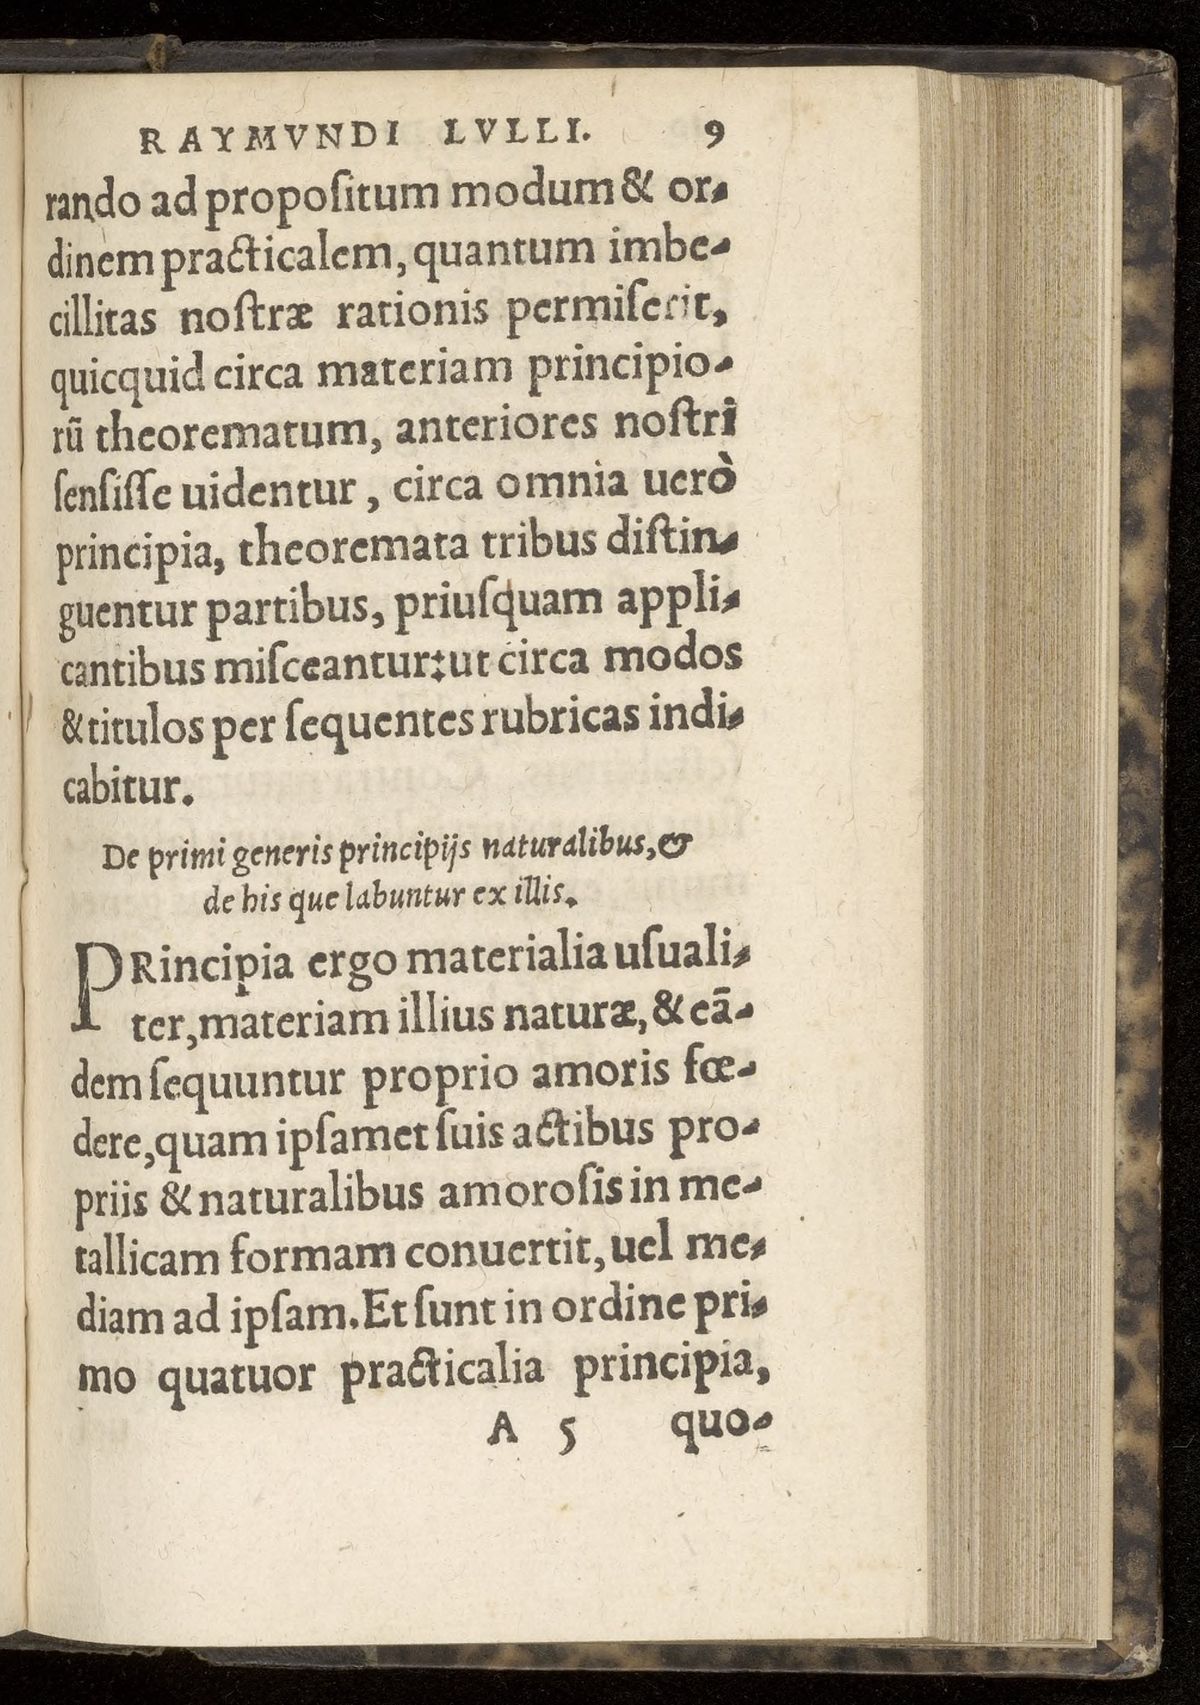 RAYMVNDI LVLLI. 9
rando ad propoſitum modum & or-
dinem practicalem, quantum imbe-
cillitas noſtræ rationis permiſerit,
quicquid circa materiam principio-
rũ theorematum, anteriores noſtri
ſenſiſſe uidentur, circa omnia uerò
principia, theoremata tribus diſtin-
guentur partibus, priuſquam appli-
cantibus miſceantur: ut circa modos
& titulos per ſequentes rubricas indi-
cabitur.
De primi generis principijs naturalibus, &
de his que labuntur ex illis.
PRincipia ergo materialia uſuali-
ter, materiam illius naturæ, & eā-
dem ſequuntur proprio amoris fœ-
dere, quam ipſamet ſuis actibus pro-
priis & naturalibus amoroſis in me-
tallicam formam conuertit, uel me-
diam ad ipſam. Et ſunt in ordine pri-
mo quatuor practicalia principia,
A 5 quo-